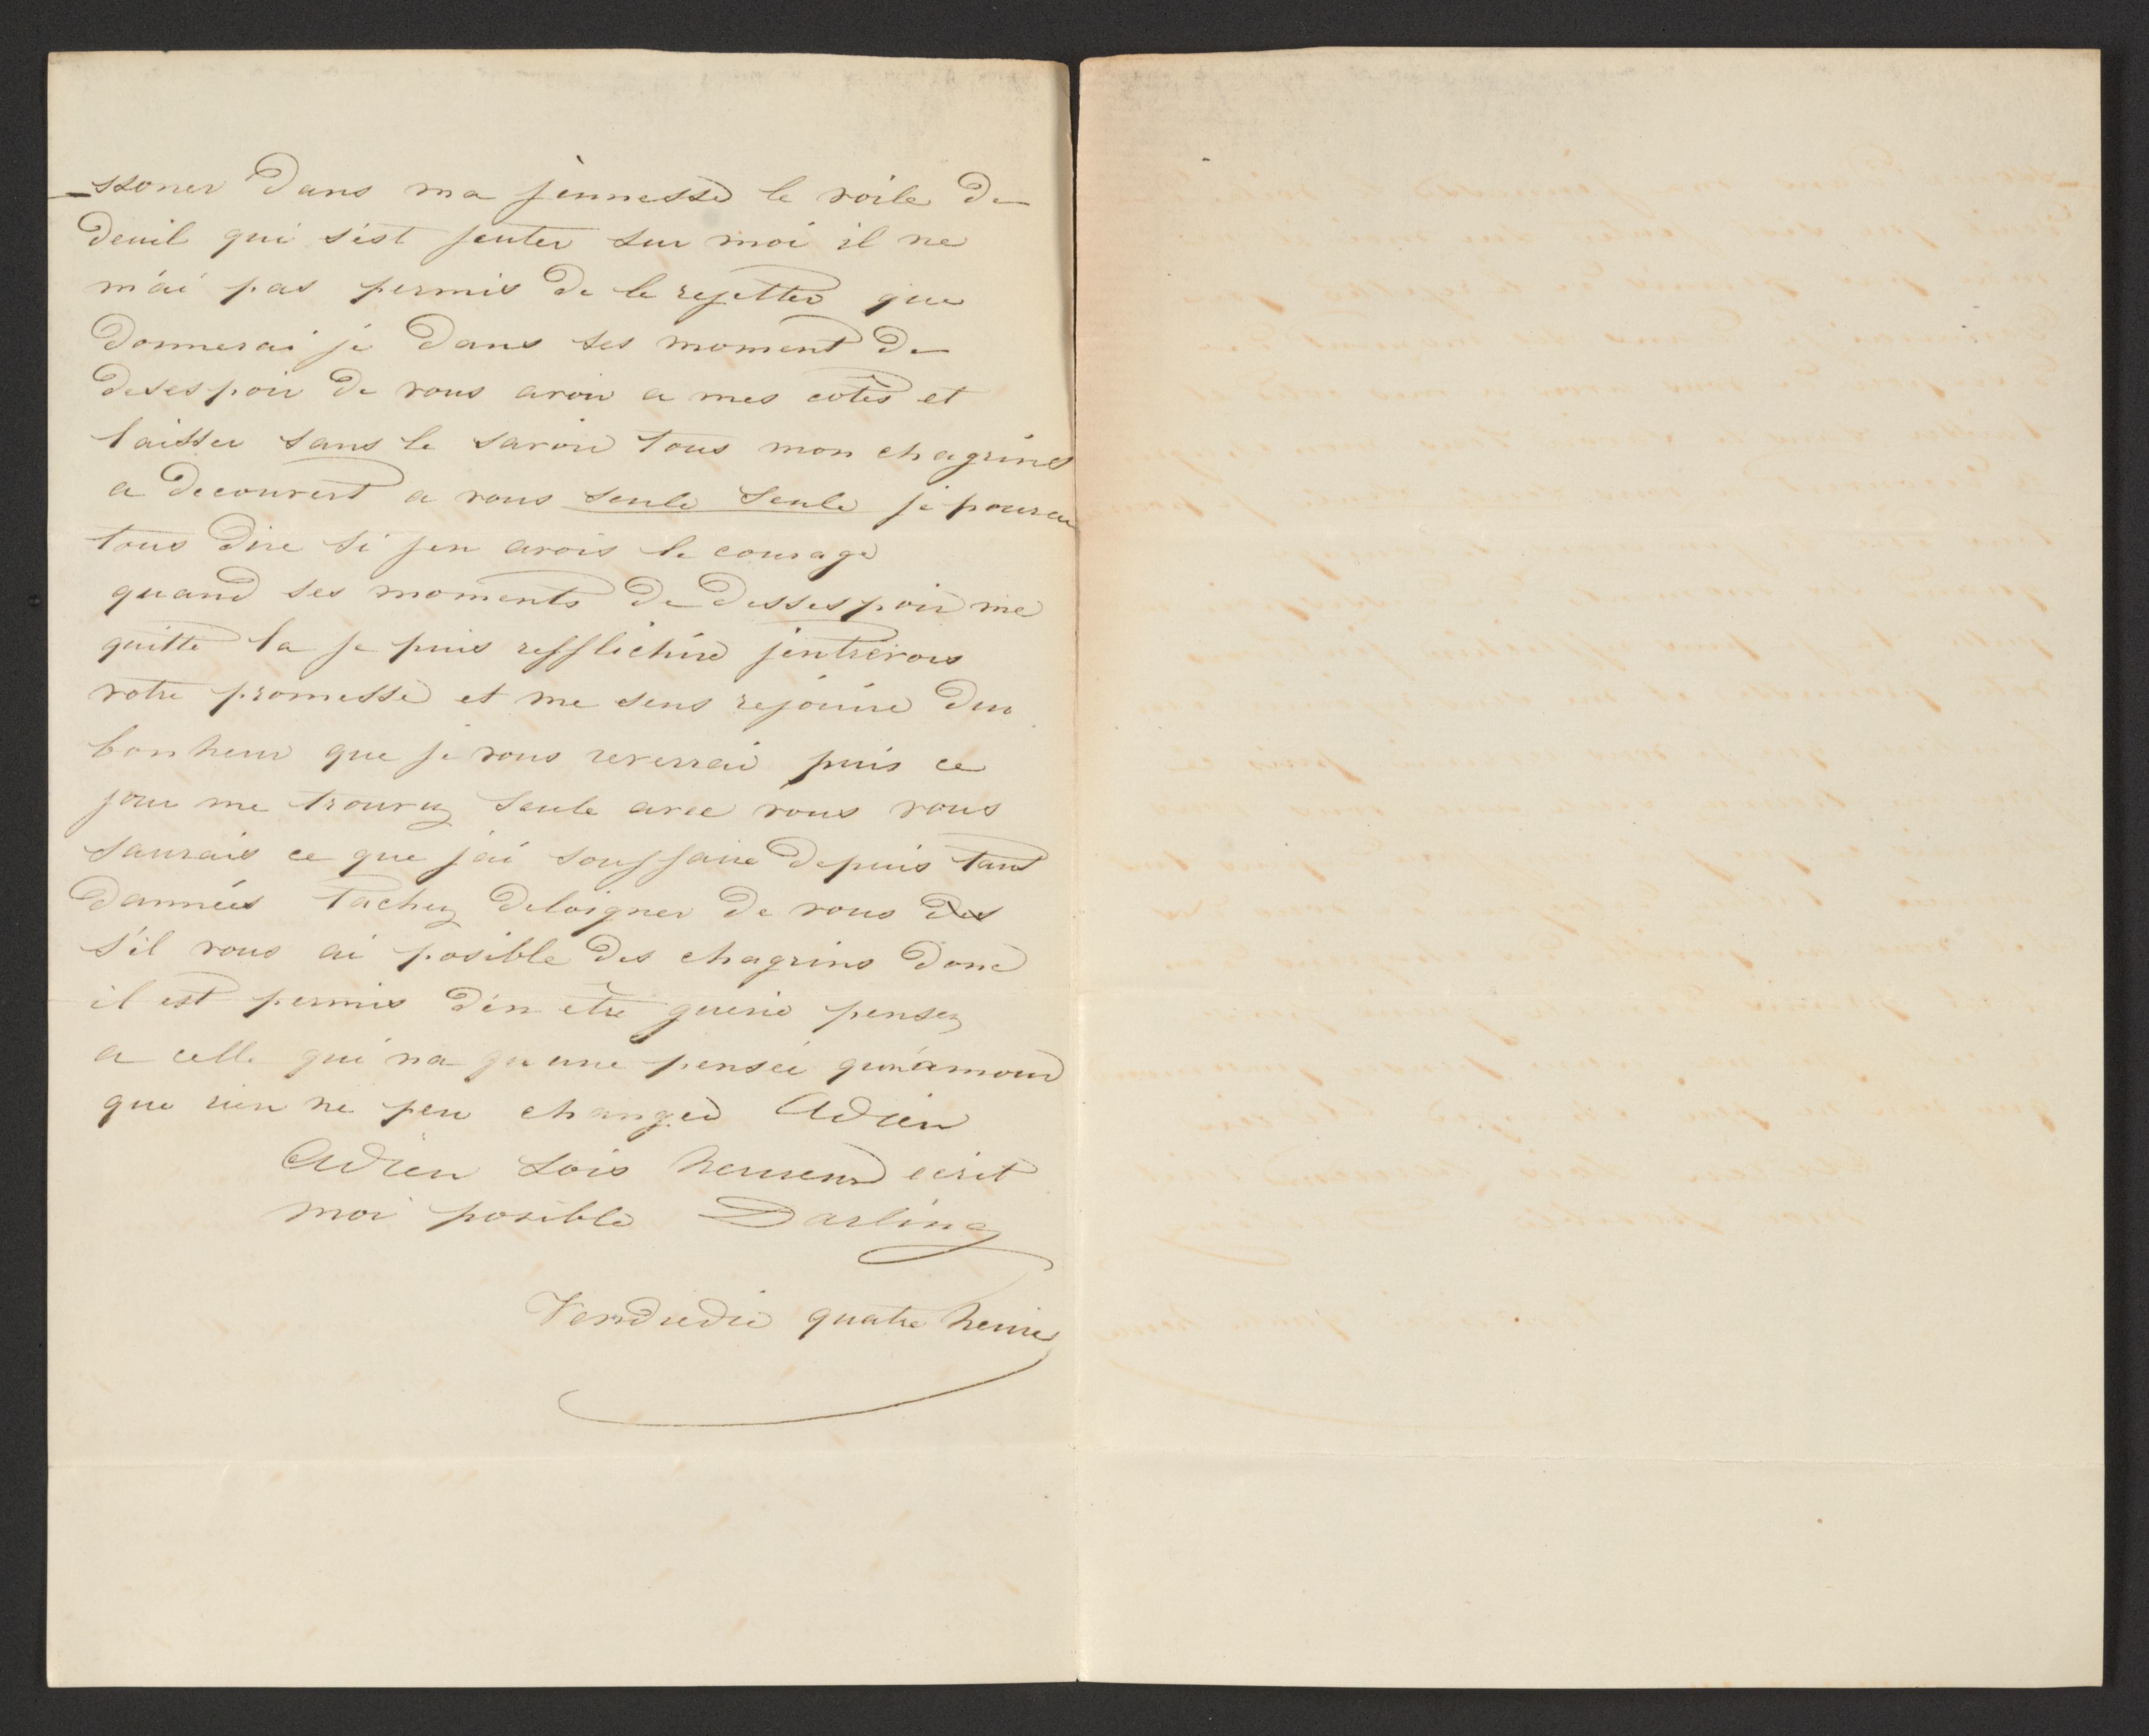 -ssoner Dans ma jeunesse le voile de
deuil qui s'est jeuter sur moi il ne
m'ai pas permis De le rejetter que
Donnerai je Dans ses moment De
desespoir De vous avoir a mes cotés et
laisser sans le savoir tous mon chagrins
a decouvert a vous seule seule je pourai
tous Dire si jen avois le courage
quand ses moments De dessespoir me
quitte la je puis refflichire jentrevois
votre promesse et me sens rejouire Du
bonheur que je vous reverrai puis ce
jour me trouvez seule avec vous vous
saurais ce que j'ai souffaire Depuis tant
Dannées Tachez Deloigner De vous des
s'il vous ai posible Des chagrins Donc
il est permis D'en être guerie pensez
a celle qui na qu une pensée qun'amour
que rien ne peu changer Adien
Adien sois heureux ecrit
moi posible Darling
Vendredie quatre heure